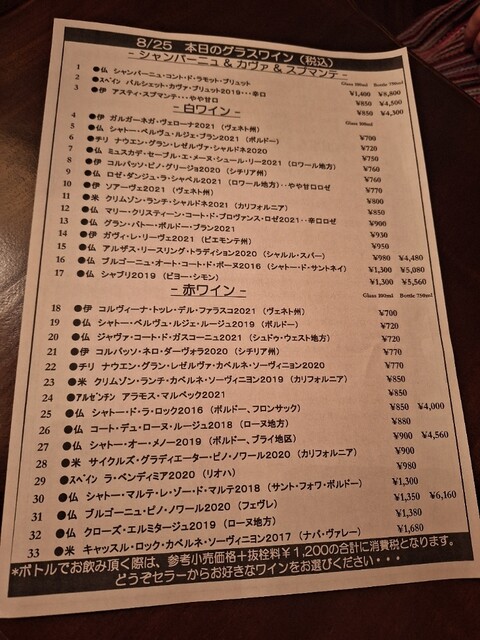 8/25 本日のグラスワイン（税込）
- シャンパーニュ & カヴァ & スプマンテ -
Glass 100ml Bottle 750ml
1 ●仏 シャンパーニュ・コント・ド・ラモット・ブリュット ¥1,400 ¥8,800
2 ●スペイン パルシェット・カヴァ・ブリュット2019・・・辛口 ¥850 ¥4,500
3 ●伊 アスティ・スプマンテ・・・やや甘口 ¥850 ¥4,300
- 白ワイン -
Glass 100ml
4 ●伊 ガルガーネガ・ヴェローナ2021（ヴェネト州） ¥700
5 ●仏 シャトー・ベルヴュ・ルジェ・ブラン2021（ボルドー） ¥720
6 ●チリ ナウエン・グラン・レゼルヴァ・シャルドネ2020 ¥750
7 ●仏 ミュスカデ・セーブル・エ・メーヌ・シュール・リー2021（ロワール地方） ¥760
8 ●伊 コルパッソ・ピノ・グリージョ2020（シチリア州） ¥760
9 ●仏 ロゼ・ダンジュ・ラ・シャペル2021（ロワール地方）・・やや甘口ロゼ ¥770
10 ●伊 ソアーヴェ2021（ヴェネト州） ¥800
11 ●米 クリムゾン・ランチ・シャルドネ2021（カリフォルニア） ¥850
12 ●仏 マリー・クリスティーン・コート・ド・プロヴァンス・ロゼ2021・・辛口ロゼ ¥900
13 ●仏 グラン・バトー・ボルドー・ブラン2021 ¥930
14 ●伊 ガヴィ・レ・リーヴェ2021（ピエモンテ州） ¥950
15 ●仏 アルザス・リースリング・トラディション2020（シャルル・スパー） ¥980 ¥4,480
16 ●仏 ブルゴーニュ・オート・コート・ド・ボーヌ2016（シャトー・ド・サントネイ） ¥1,300 ¥5,080
17 ●仏 シャブリ2019（ビヨー・シモン） ¥1,300 ¥5,560
- 赤ワイン -
Glass 100ml Bottle 750ml
18 ●伊 コルヴィーナ・トッレ・デル・ファラスコ2021（ヴェネト州） ¥700
19 ●仏 シャトー・ベルヴュ・ルジェ・ルージュ2019（ボルドー） ¥720
20 ●仏 ジャヴァ・コート・ド・ガスコーニュ2021（シュドゥ・ウェスト地方） ¥720
21 ●伊 コルパッソ・ネロ・ダーヴォラ2020（シチリア州） ¥770
22 ●チリ ナウエン・グラン・レゼルヴァ・カベルネ・ソーヴィニヨン2020 ¥770
23 ●米 クリムゾン・ランチ・カベルネ・ソーヴィニヨン2019（カリフォルニア） ¥850
24 ●アルゼンチン アラモス・マルベック2021 ¥850
25 ●仏 シャトー・ド・ラ・ロック2016（ボルドー、フロンサック） ¥850 ¥4,000
26 ●仏 コート・デュ・ローヌ・ルージュ2018（ローヌ地方） ¥880
27 ●仏 シャトー・オー・メノー2019（ボルドー、ブライ地区） ¥900 ¥4,560
28 ●米 サイクルズ・グラディエーター・ピノ・ノワール2020（カリフォルニア） ¥900
29 ●スペイン ラ・ベンディミア2020（リオハ） ¥980
30 ●仏 シャトー・マルテ・レ・ゾード・マルテ2018（サント・フォワ・ボルドー） ¥1,300
31 ●仏 ブルゴーニュ・ピノ・ノワール2020（フェヴレ） ¥1,350 ¥6,160
32 ●仏 クローズ・エルミタージュ2019（ローヌ地方） ¥1,380
33 ●米 キャッスル・ロック・カベルネ・ソーヴィニヨン2017（ナパ・ヴァレー） ¥1,680
*ボトルでお飲み頂く際は、参考小売価格＋抜栓料¥1,200の合計に消費税となります。
どうぞセラーからお好きなワインをお選びください・・・